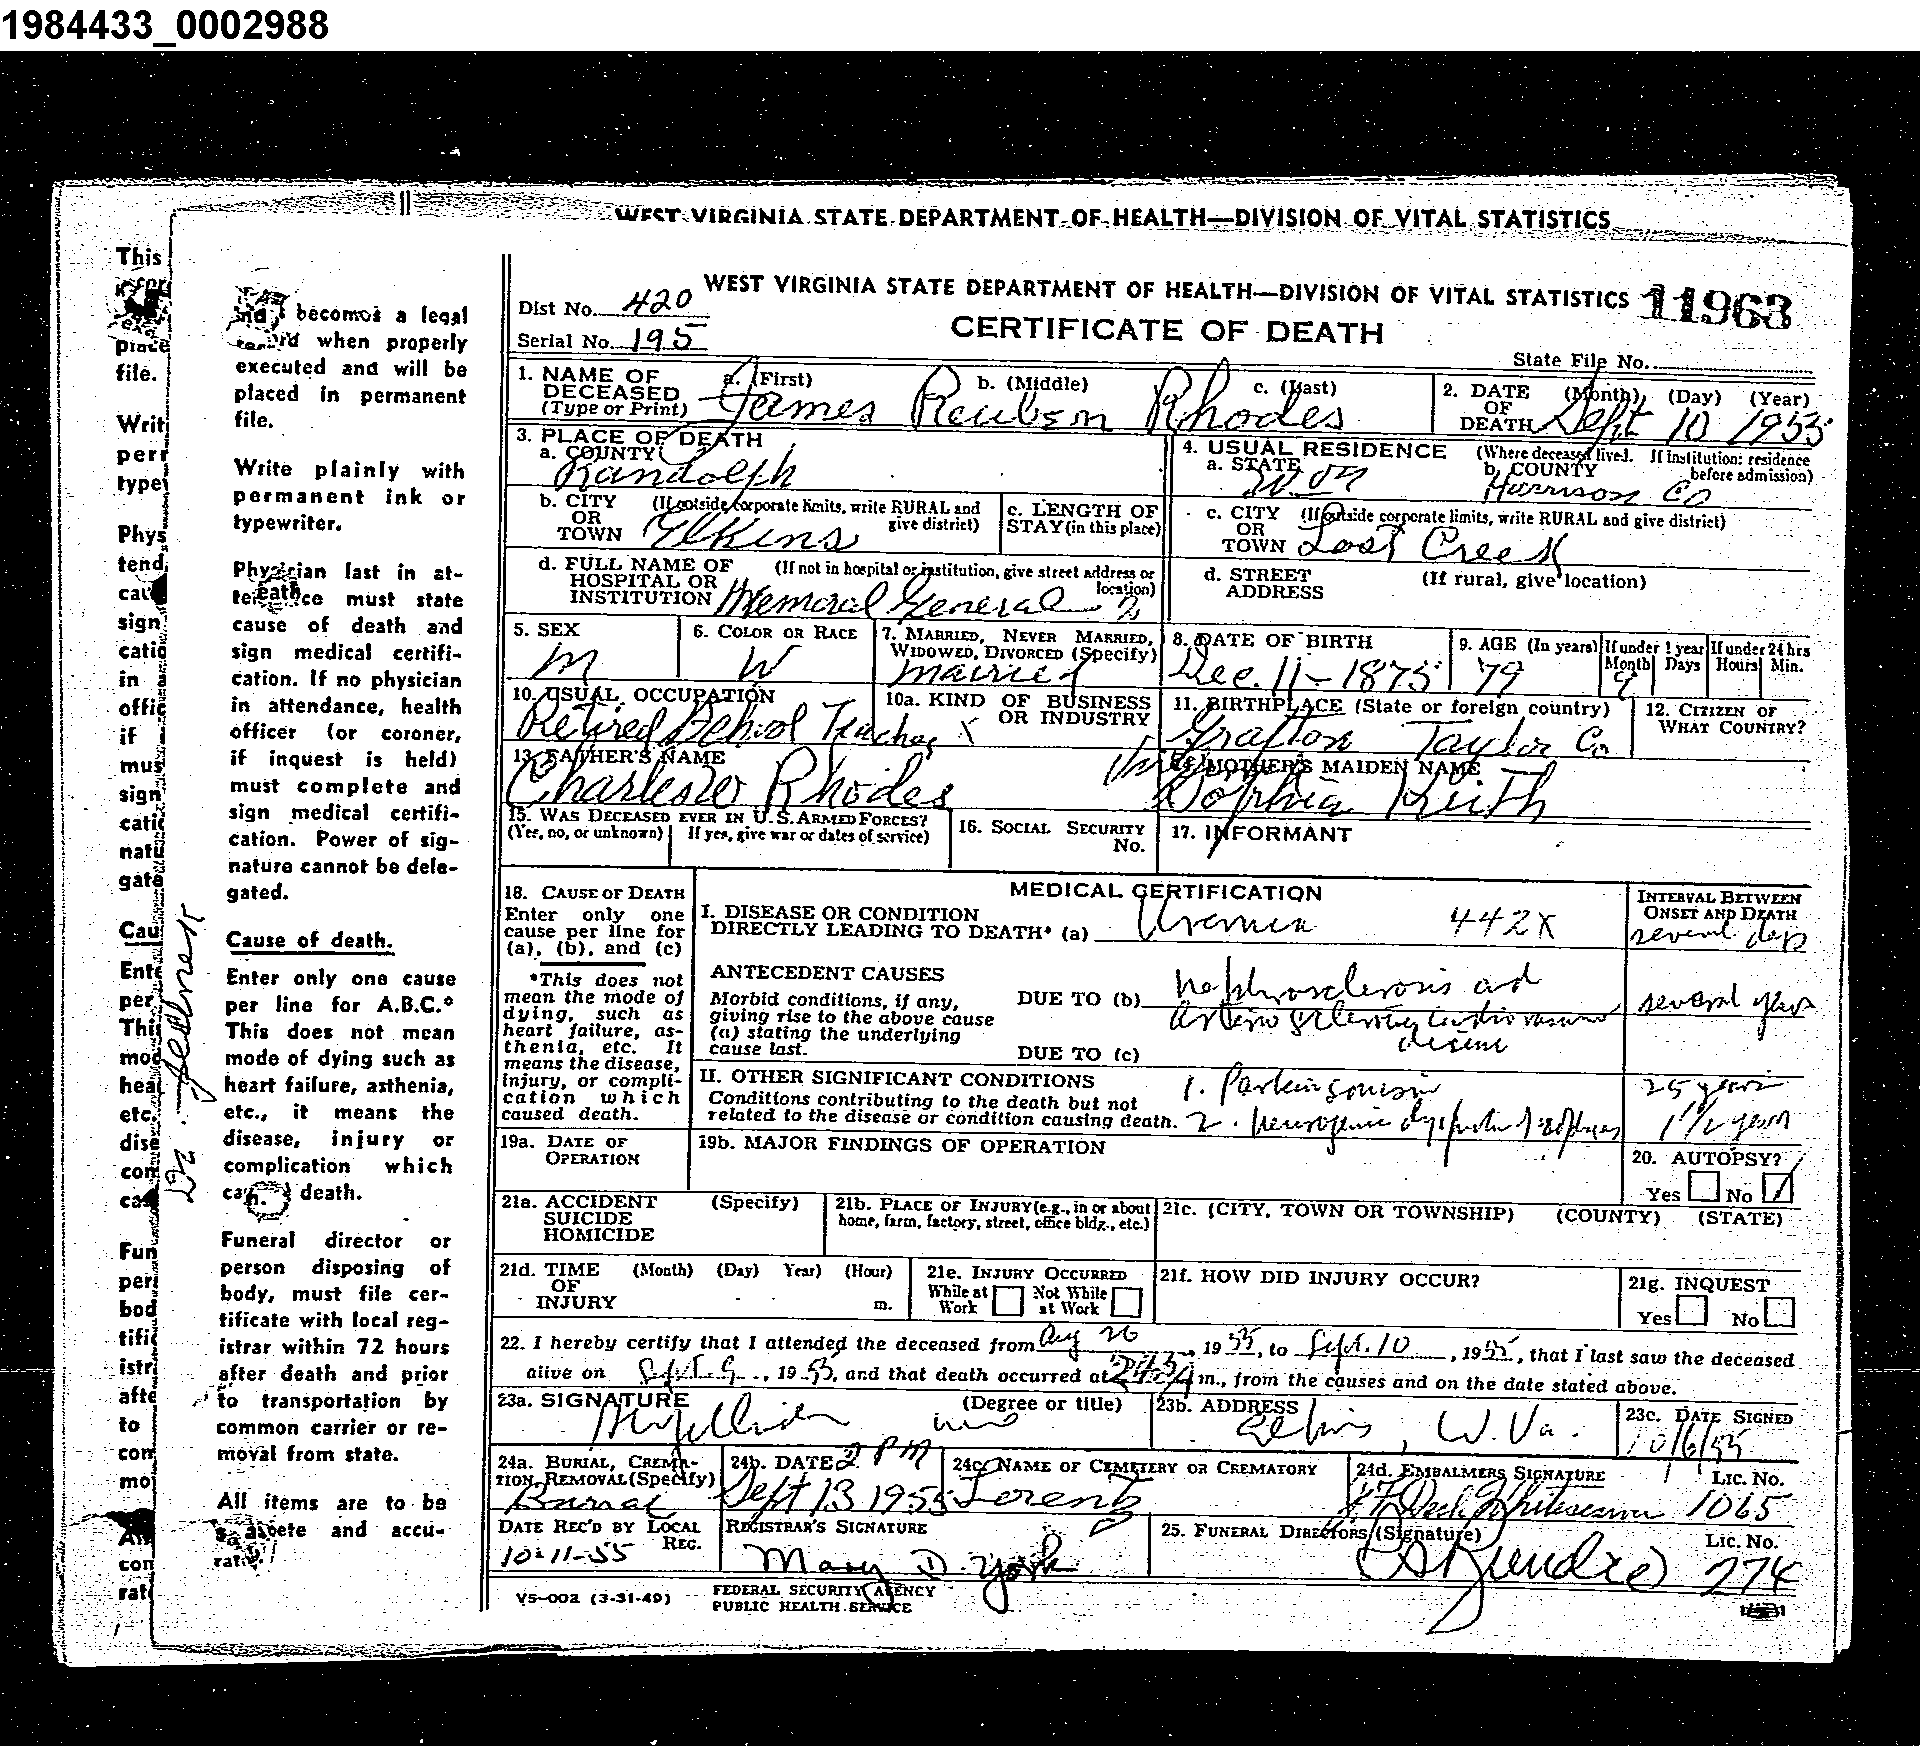 1984433_0002988
WEST VIRGINIA STATE DEPARTMENT OF HEALTH—DIVISION OF VITAL STATISTICS
This
place
file.
Writ
perr
type
Phys
tend
cau
sign
catio
in
offic
if
mus
sign
catic
natu
gate
Cau
Ente
per
This
mod
hea
etc.
dise
con
ca
Fun
per
bod
tific
istr
afte
to
con
mo
con
rat
becomes a legal
when properly
executed and will be
placed in permanent
file.
Write plainly with
permanent ink or
typewriter.
Physician last in at-
must state
cause of death and
sign medical certifi-
cation. If no physician
in attendance, health
officer (or coroner,
if inquest is held)
must complete and
sign medical certifi-
cation. Power of sig-
nature cannot be dele-
gated.
Cause of death.
Enter only one cause
per line for A.B.C.*
This does not mean
mode of dying such as
heart failure, asthenia,
etc., it means the
disease, injury or
complication which
death.
Funeral director or
person disposing of
body, must file cer-
tificate with local reg-
istrar within 72 hours
after death and prior
to transportation by
common carrier or re-
moval from state.
All items are to be
and accu-
WEST VIRGINIA STATE DEPARTMENT OF HEALTH—DIVISION OF VITAL STATISTICS 11963
Dist No. 420
CERTIFICATE OF DEATH
Serial No. 195
State File No.
1. NAME OF DECEASED (Type or Print) a. (First) James b. (Middle) Reuben c. (Last) Rhodes
2. DATE OF DEATH (Month) (Day) (Year) Sept 10 1955
3. PLACE OF DEATH
a. COUNTY Randolph
4. USUAL RESIDENCE (Where deceased lived. If institution: residence before admission)
a. STATE b. COUNTY Harrison Co
b. CITY OR TOWN (If outside corporate limits, write RURAL and give district) Elkins
c. LENGTH OF STAY (in this place)
c. CITY OR TOWN (If outside corporate limits, write RURAL and give district) Lost Creek
d. FULL NAME OF HOSPITAL OR INSTITUTION (If not in hospital or institution, give street address or location) Memoral General 2
d. STREET ADDRESS (If rural, give location)
5. SEX M
6. COLOR OR RACE W
7. MARRIED, NEVER MARRIED, WIDOWED, DIVORCED (Specify) married
8. DATE OF BIRTH Dec. 11-1875
9. AGE (In years) 79 If under 1 year Month 9 Days If under 24 hrs Hours Min.
10. USUAL OCCUPATION Retired School Teacher X
10a. KIND OF BUSINESS OR INDUSTRY
11. BIRTHPLACE (State or foreign country) Grafton Taylor Co
12. CITIZEN OF WHAT COUNTRY?
13. FATHER'S NAME Rhodes
MOTHER'S MAIDEN NAME Sophia Keith
15. WAS DECEASED EVER IN U. S. ARMED FORCES?
(Yes, no, or unknown) If yes, give war or dates of service)
16. SOCIAL SECURITY No.
17. INFORMANT
18. CAUSE OF DEATH
Enter only one cause per line for (a), (b), and (c)
*This does not mean the mode of dying, such as heart failure, asthenia, etc. It means the disease, injury, or complication which caused death.
MEDICAL CERTIFICATION
INTERVAL BETWEEN ONSET AND DEATH
I. DISEASE OR CONDITION DIRECTLY LEADING TO DEATH* (a) Uremia 442X several days
ANTECEDENT CAUSES
Morbid conditions, if any, giving rise to the above cause (a) stating the underlying cause last.
DUE TO (b) nephrosclerosis and several years
disease
DUE TO (c)
II. OTHER SIGNIFICANT CONDITIONS
Conditions contributing to the death but not related to the disease or condition causing death.
1. Parkinsonism 25 years
2. neurogenic 1 1/2 years
19a. DATE OF OPERATION
19b. MAJOR FINDINGS OF OPERATION
20. AUTOPSY? Yes No
21a. ACCIDENT SUICIDE HOMICIDE (Specify)
21b. PLACE OF INJURY (e.g., in or about home, farm, factory, street, office bldg., etc.)
21c. (CITY, TOWN OR TOWNSHIP) (COUNTY) (STATE)
21d. TIME OF INJURY (Month) (Day) Year) (Hour) m.
21e. INJURY OCCURRED While at Work Not While at Work
21f. HOW DID INJURY OCCUR?
21g. INQUEST Yes No
22. I hereby certify that I attended the deceased from Aug 26, 1955, to Sept. 10, 1955, that I last saw the deceased
alive on Sept. 9, 1955, and that death occurred at m., from the causes and on the date stated above.
23a. SIGNATURE (Degree or title)
23b. ADDRESS Elkins, W. Va.
23c. DATE SIGNED 10/6/55
24a. BURIAL, CREMATION, REMOVAL (Specify) Burial
24b. DATE 2 PM Sept 13 1955
24c. NAME OF CEMETERY OR CREMATORY Lorentz
24d. EMBALMERS SIGNATURE Lic. No. 1065
DATE REC'D BY LOCAL REG. 10-11-55
REGISTRAR'S SIGNATURE Mary D. York
25. FUNERAL DIRECTORS (Signature) Lic. No. 274
VS-002 (3-31-49)
FEDERAL SECURITY AGENCY
PUBLIC HEALTH SERVICE